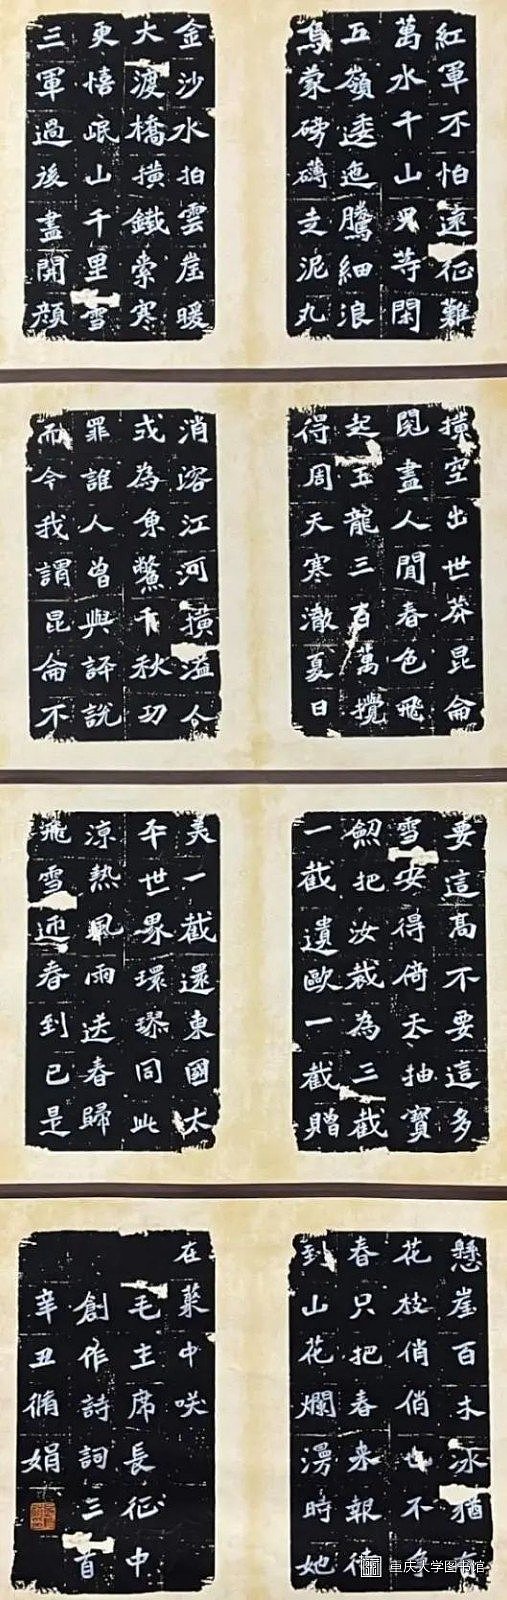 紅軍不怕遠征難
萬水千山只等閑
五嶺逶迤騰細浪
烏蒙磅礴走泥丸
金沙水拍雲崖暖
大渡橋橫鐵索寒
更憘岷山千里雪
三軍過後盡開顔
橫空出世莽昆侖
閱盡人間春色飛
起玉龍三百萬攪
得周天寒澈夏日
消溶江河橫溢人
或為魚鱉千秋功
罪誰人曾與評說
而今我謂昆侖不
要這高不要這多
雪安得倚天抽寶
劒把汝裁為三截
一截遺歐一截贈
美一截還東國太
平世界環球同此
涼熱風雨送春歸
飛雪迎春到已是
懸崖百丈冰猶有
花枝俏俏也不爭
春只把春來報待
到山花爛漫時她
在叢中咲
毛主席長征中
創作詩詞三首
辛丑脩娟
重庆大学图书馆